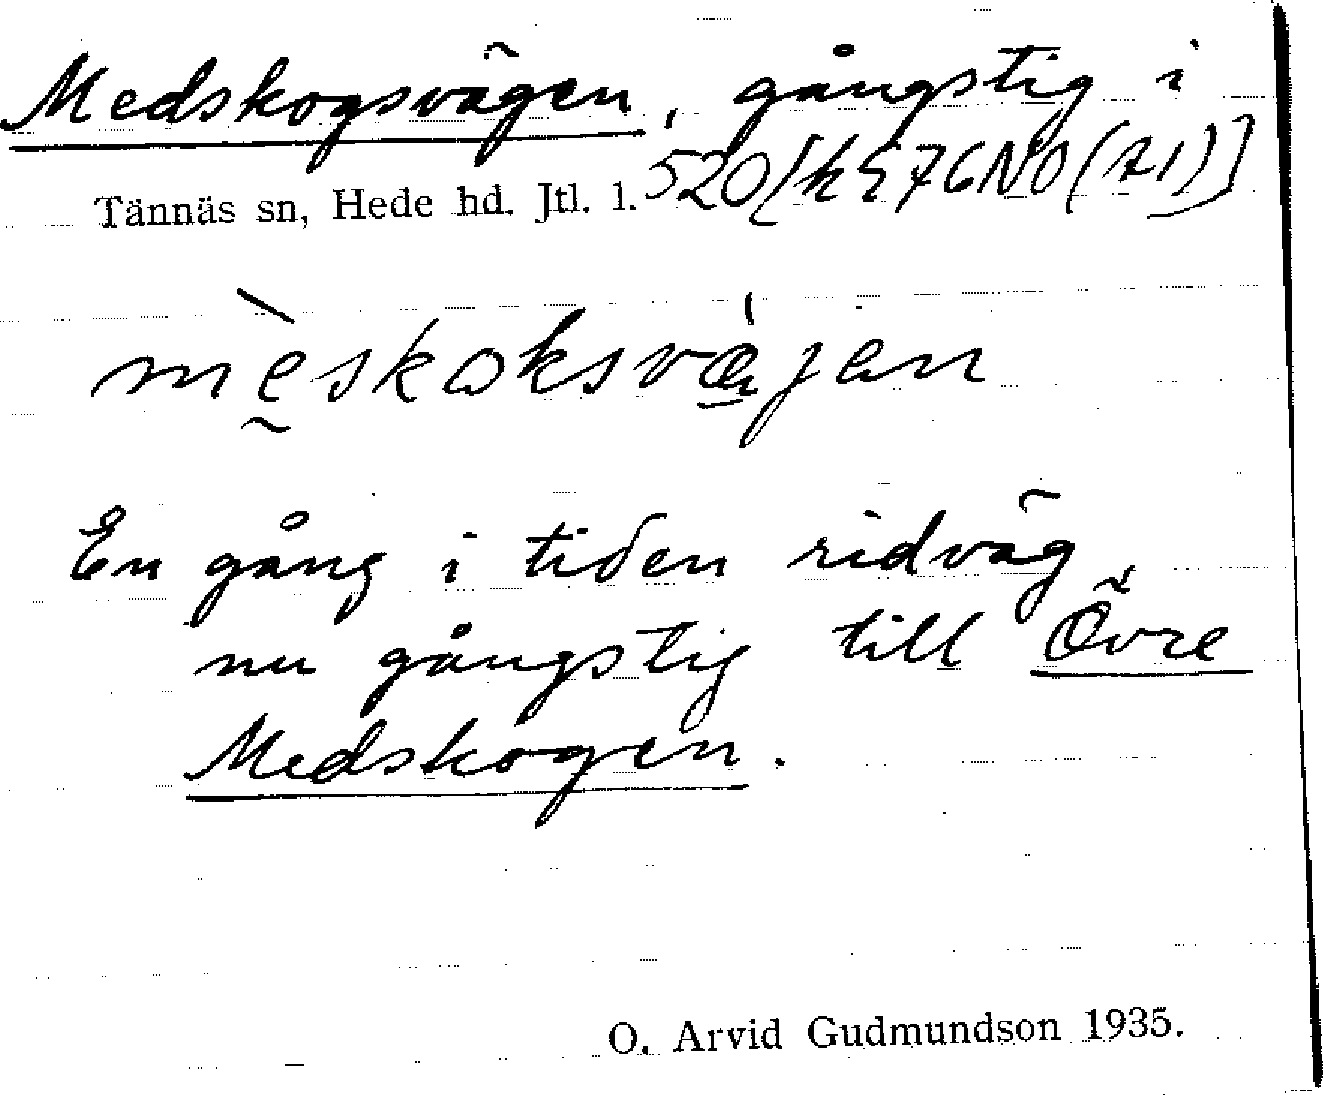 Medskogsvägen, gångstig i
Tännäs sn, Hede hd. Jtl. l. 520
mèskoksvæ̀jen
En gång i tiden ridväg
nu gångstig till Övre
Medskogen.
O. Arvid Gudmundson 1935.